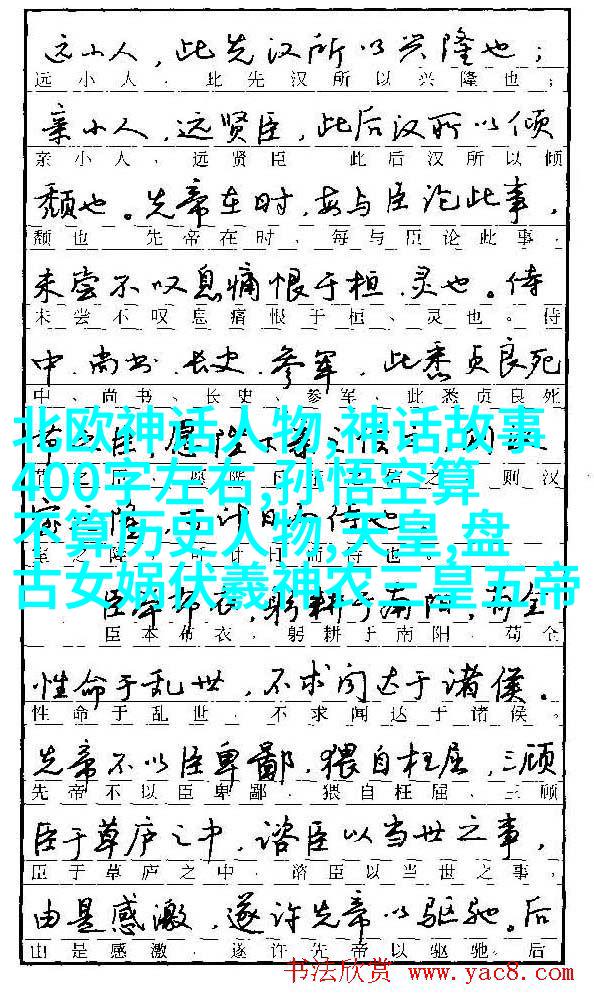 远小人，此先汉所以兴隆也；
远小人，此先汉所以兴隆也；
亲小人，远贤臣，此后汉所以倾
亲小人，远贤臣 此后汉所以倾
颓也。先帝在时，每与臣论此事，
颓也 先帝在时，每与臣论此事，
未尝不叹息痛恨于桓、灵也。侍
未尝不叹息痛恨于桓、灵也。侍
中、尚书、长史、参军，此悉贞良死
中、尚书、长史、参军、此悉贞良死
北欧神话人物,神话故事
臣,愿陛
400字左右,孙悟空算
则汉
不算历史人物,天皇,盘
计日 待也
古女娲伏羲神农三皇五帝
臣本布衣，躬耕于南阳，苟全
臣本布衣，躬耕于南阳，苟全
性命于乱世，不求闻达于诸侯。
性命于乱世，不求闻达于诸侯。
先帝不以臣卑鄙，猥自枉屈，三顾
先帝不以臣卑鄙，猥自枉屈、三顾
臣于草庐之中，谘臣以当世之事，
臣于草庐之中，谘臣以当世之事，
由是感激，遂许先帝以驱驰。后
由是感激，遂许先帝以驱驰。后
书法欣赏 www.yac8.com